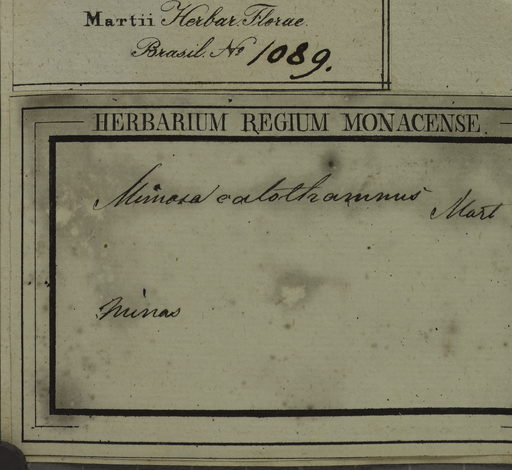 Martii Herbar. Florae
Brasil. No 1089.
HERBARIUM REGIUM MONACENSE.
Mimosa calothamnus Mart
Minas